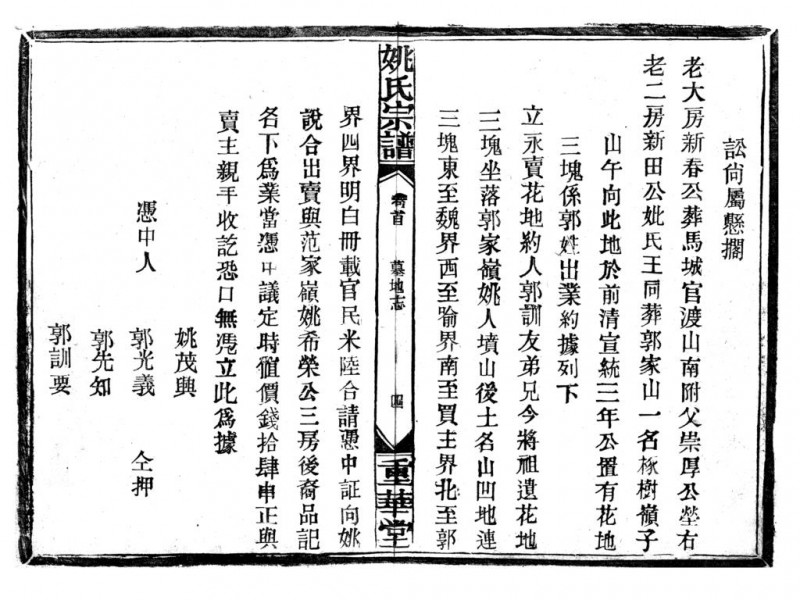 訟尙屬懸擱
老大房新春公葬馬城官渡山南附父崇厚公塋右
老二房新田公妣氏王同葬郭家山一名椓樹嶺子
山午向此地於前清宣統三年公置有花地
三塊係郭姓出業約據列下
立永賣花地約人郭訓友弟兄今將祖遺花地
三塊坐落郭家嶺姚人墳山後土名山凹地連
三塊東至魏界西至喻界南至買主界北至郭
姚氏宗譜
卷首
墓地志
四
重華堂
界四界明白冊載官民米陸合請憑中証向姚
說合出賣與范家嶺姚希榮公三房後裔品記
名下爲業當憑中議定時値價錢拾肆串正與
賣主親手收訖恐口無憑立此爲據
憑中人
姚茂興
郭光義 仝押
郭先知
郭訓要